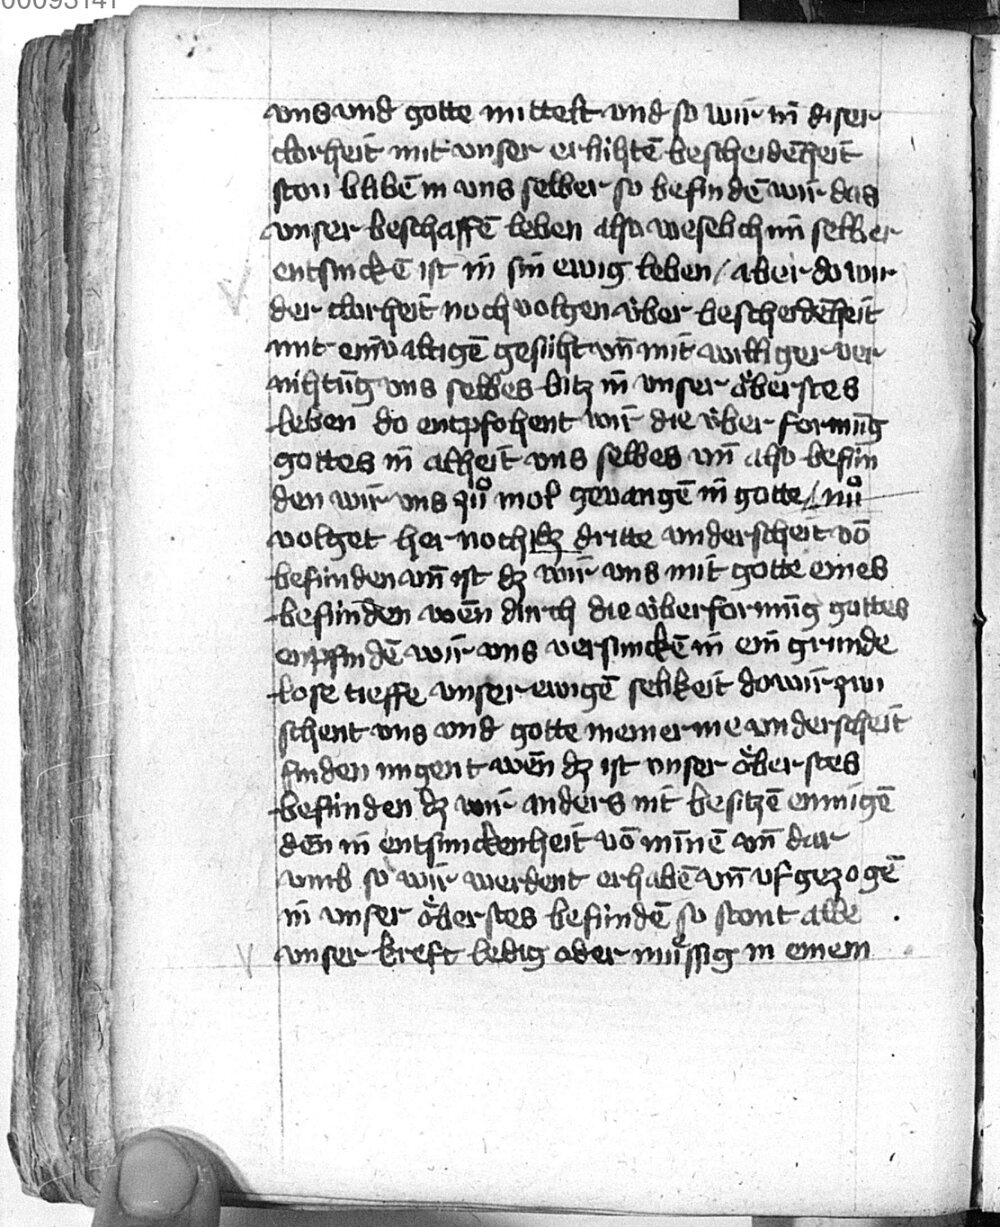 00093141
vns vnd gotte mittelt vnd so wir in diser
clorheit mit vnser erlühtē bescheidēheit
ston blibē in vns selber so befindē wir das
vnser beschaffē leben also weselich im selber
entsinckē ist in sin ewig leben / aber do wir
der clorheit noch volgen v̈ber bescheidēheit
mit einvaltigē gesiht vn̄ mit williger ver
nihtūg vns selbes bitz in vnser öberstes
leben do entpfohent wir die v̈ber formūg
gottes in alheit vns selbes vn̄ also befin
den wir vns zuͦ mol gevangē in gotte / nuͦ
volget her noch dz dritte vnderscheit vō
befinden vn̄ ist dz wir vns mit gotte eines
befinden wēn durch die v̈berformūg gottes
enpfindē wir vns versinckē in ein grunde
lose tieffe vnser ewigē selikeit do wir zwi
schent vns vnd gotte niemer me vnderscheit
finden mugent wēn dz ist vnser öberstes
befinden dz wir anders nit besitzē enmigē
dēn in entsinckenheit vō minnē vn̄ dar
vmb so wir werdent erhabē vn̄ vfgezogē
in vnser öberstes befindē so stont alle
vnser kreft ledig oder müssig in einem